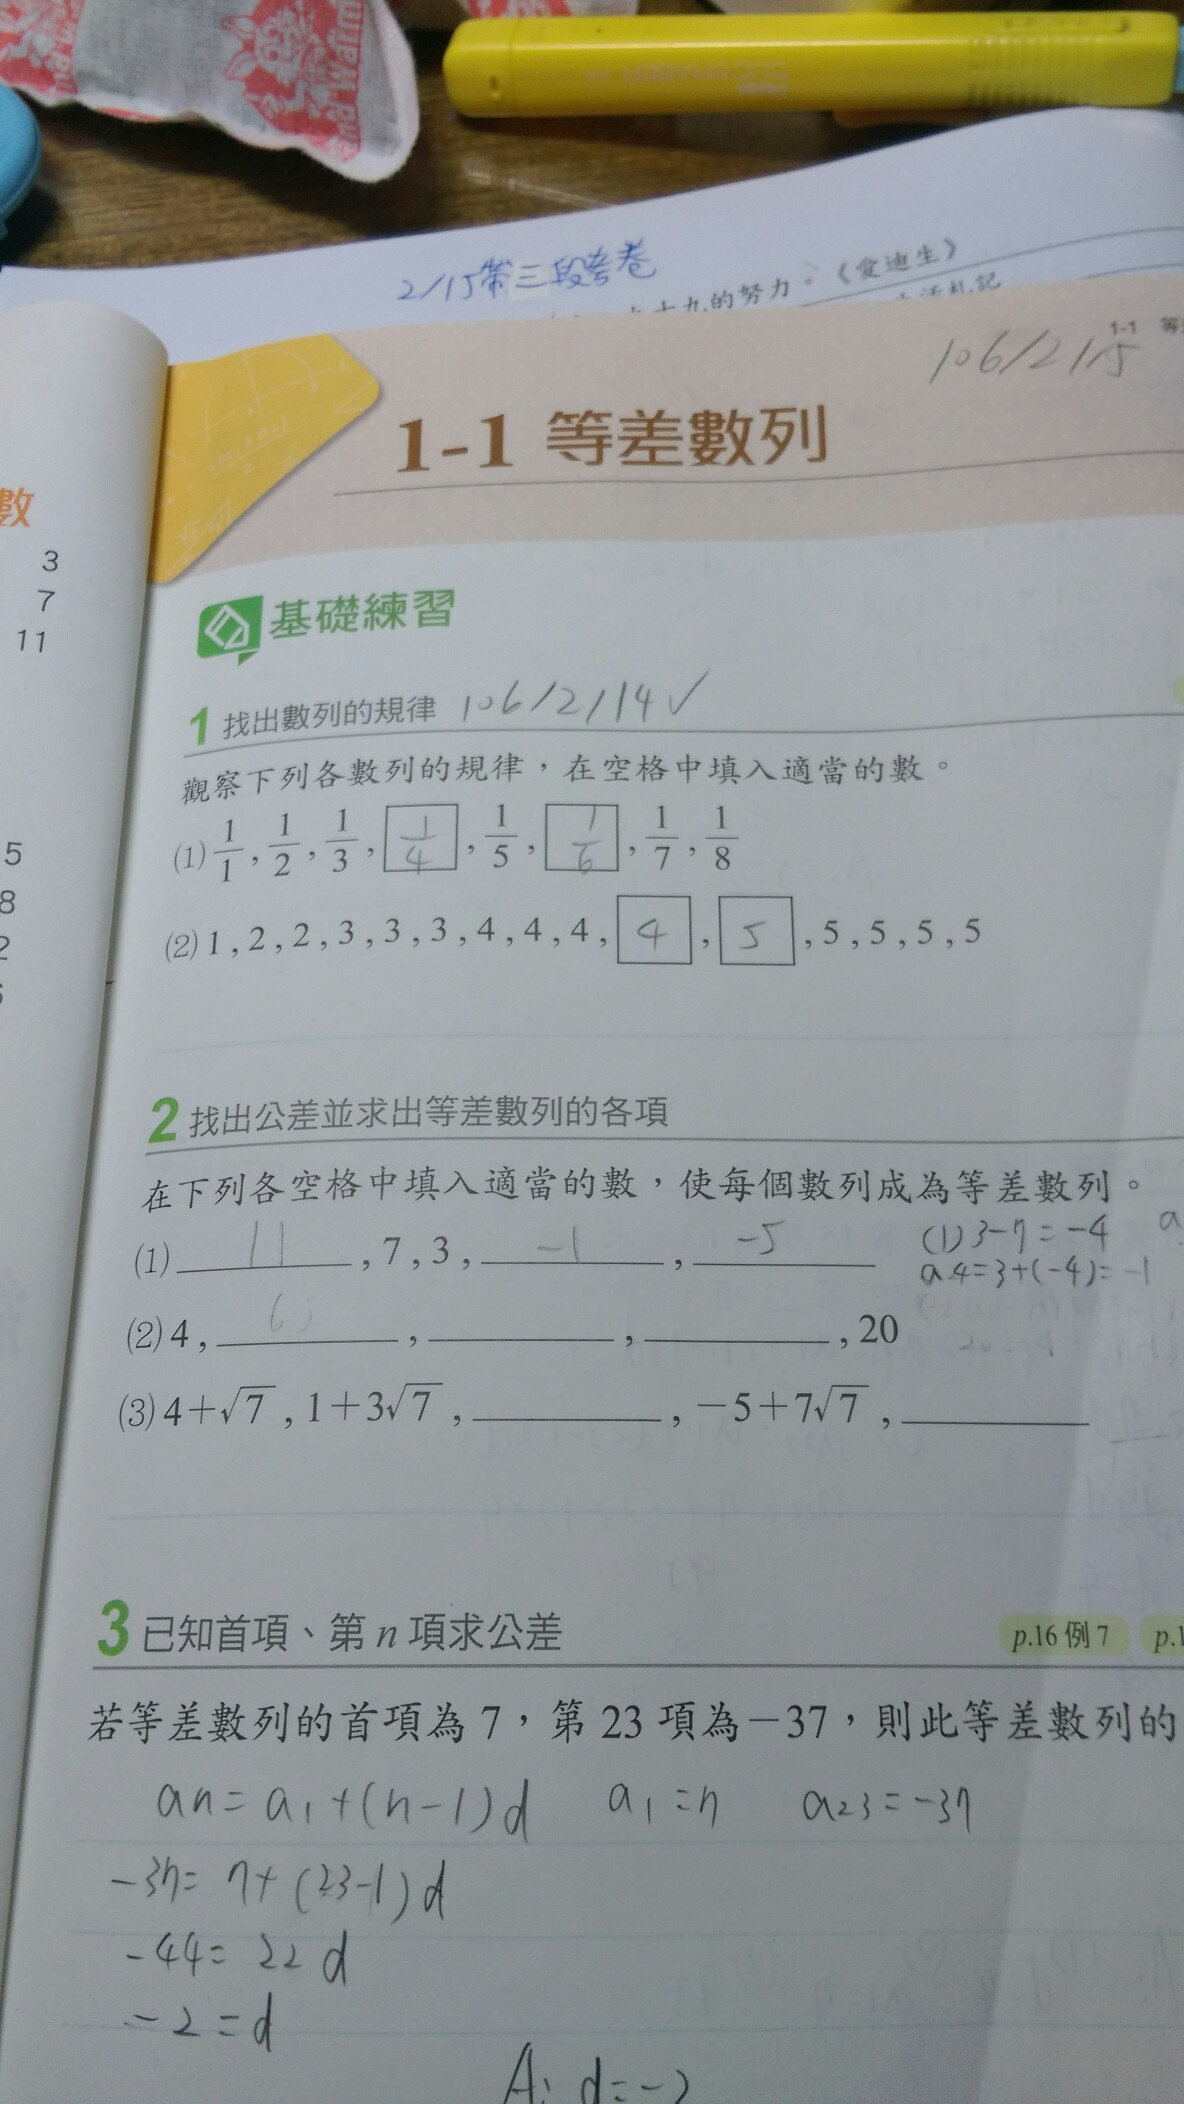 2/15帶三段考卷
九十九的努力。《愛迪生》
生活札記
1-1
106/2/15
1-1 等差數列
數
3
7
11
5
8
2
基礎練習
1 找出數列的規律 106/2/14✓
觀察下列各數列的規律，在空格中填入適當的數。
(1) 1/1 , 1/2 , 1/3 , 1/4 , 1/5 , 1/6 , 1/7 , 1/8
(2) 1 , 2 , 2 , 3 , 3 , 3 , 4 , 4 , 4 , 4 , 5 , 5 , 5 , 5 , 5
2 找出公差並求出等差數列的各項
在下列各空格中填入適當的數，使每個數列成為等差數列。
(1) 11 , 7 , 3 , -1 , -5 (1) 3-7=-4
a4=3+(-4)=-1
(2) 4 , ＿＿ , ＿＿ , ＿＿ , 20
(3) 4+√7 , 1+3√7 , ＿＿ , -5+7√7 , ＿＿
3 已知首項、第 n 項求公差 p.16 例 7
若等差數列的首項為 7，第 23 項為－37，則此等差數列的
an=a1+(n-1)d a1=7 a23=-37
-37=7+(23-1)d
-44=22d
-2=d
A: d=-2